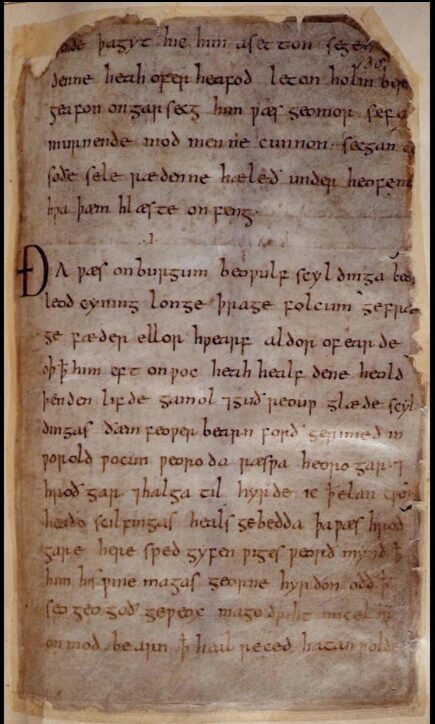 þagyt hie him asetton segen
denne heah ofer heafod leton holm ber
geafon ongarsecg him ƿæs geomor sefa
murnende mod men ne cunnon · secgan
soðe sele rædenne hæleð under heofen
hƿa þæm hlæste onfeng ·
ÐA ƿæs onburgum beoƿulf scyldinga
leod cyning longe þrage folcum gefræ
ge fæder ellor hƿearf aldor of earde
oþ ꝥ him eft onƿoc heah healf dene heold
þenden lifde gamol ⁊ guð reouƿ glæde scyl
dingas ðæm feoƿer bearn forð gerimed in
ƿorold ƿocun ƿeoro da ræsƿa heoro gar · ⁊
hroð gar ⁊ halga til hyrde ic ꝥ elan cƿen
heaðo scilfingas heals gebedda þa ƿæs hroð
gare here sped gyfen ƿiges ƿeorð mynd ꝥ
him his ƿine magas georne hyrdon oðð ꝥ
seo geogoð geƿeox mago driht micel
onmod bearn ꝥ heal reced hatan ƿolde